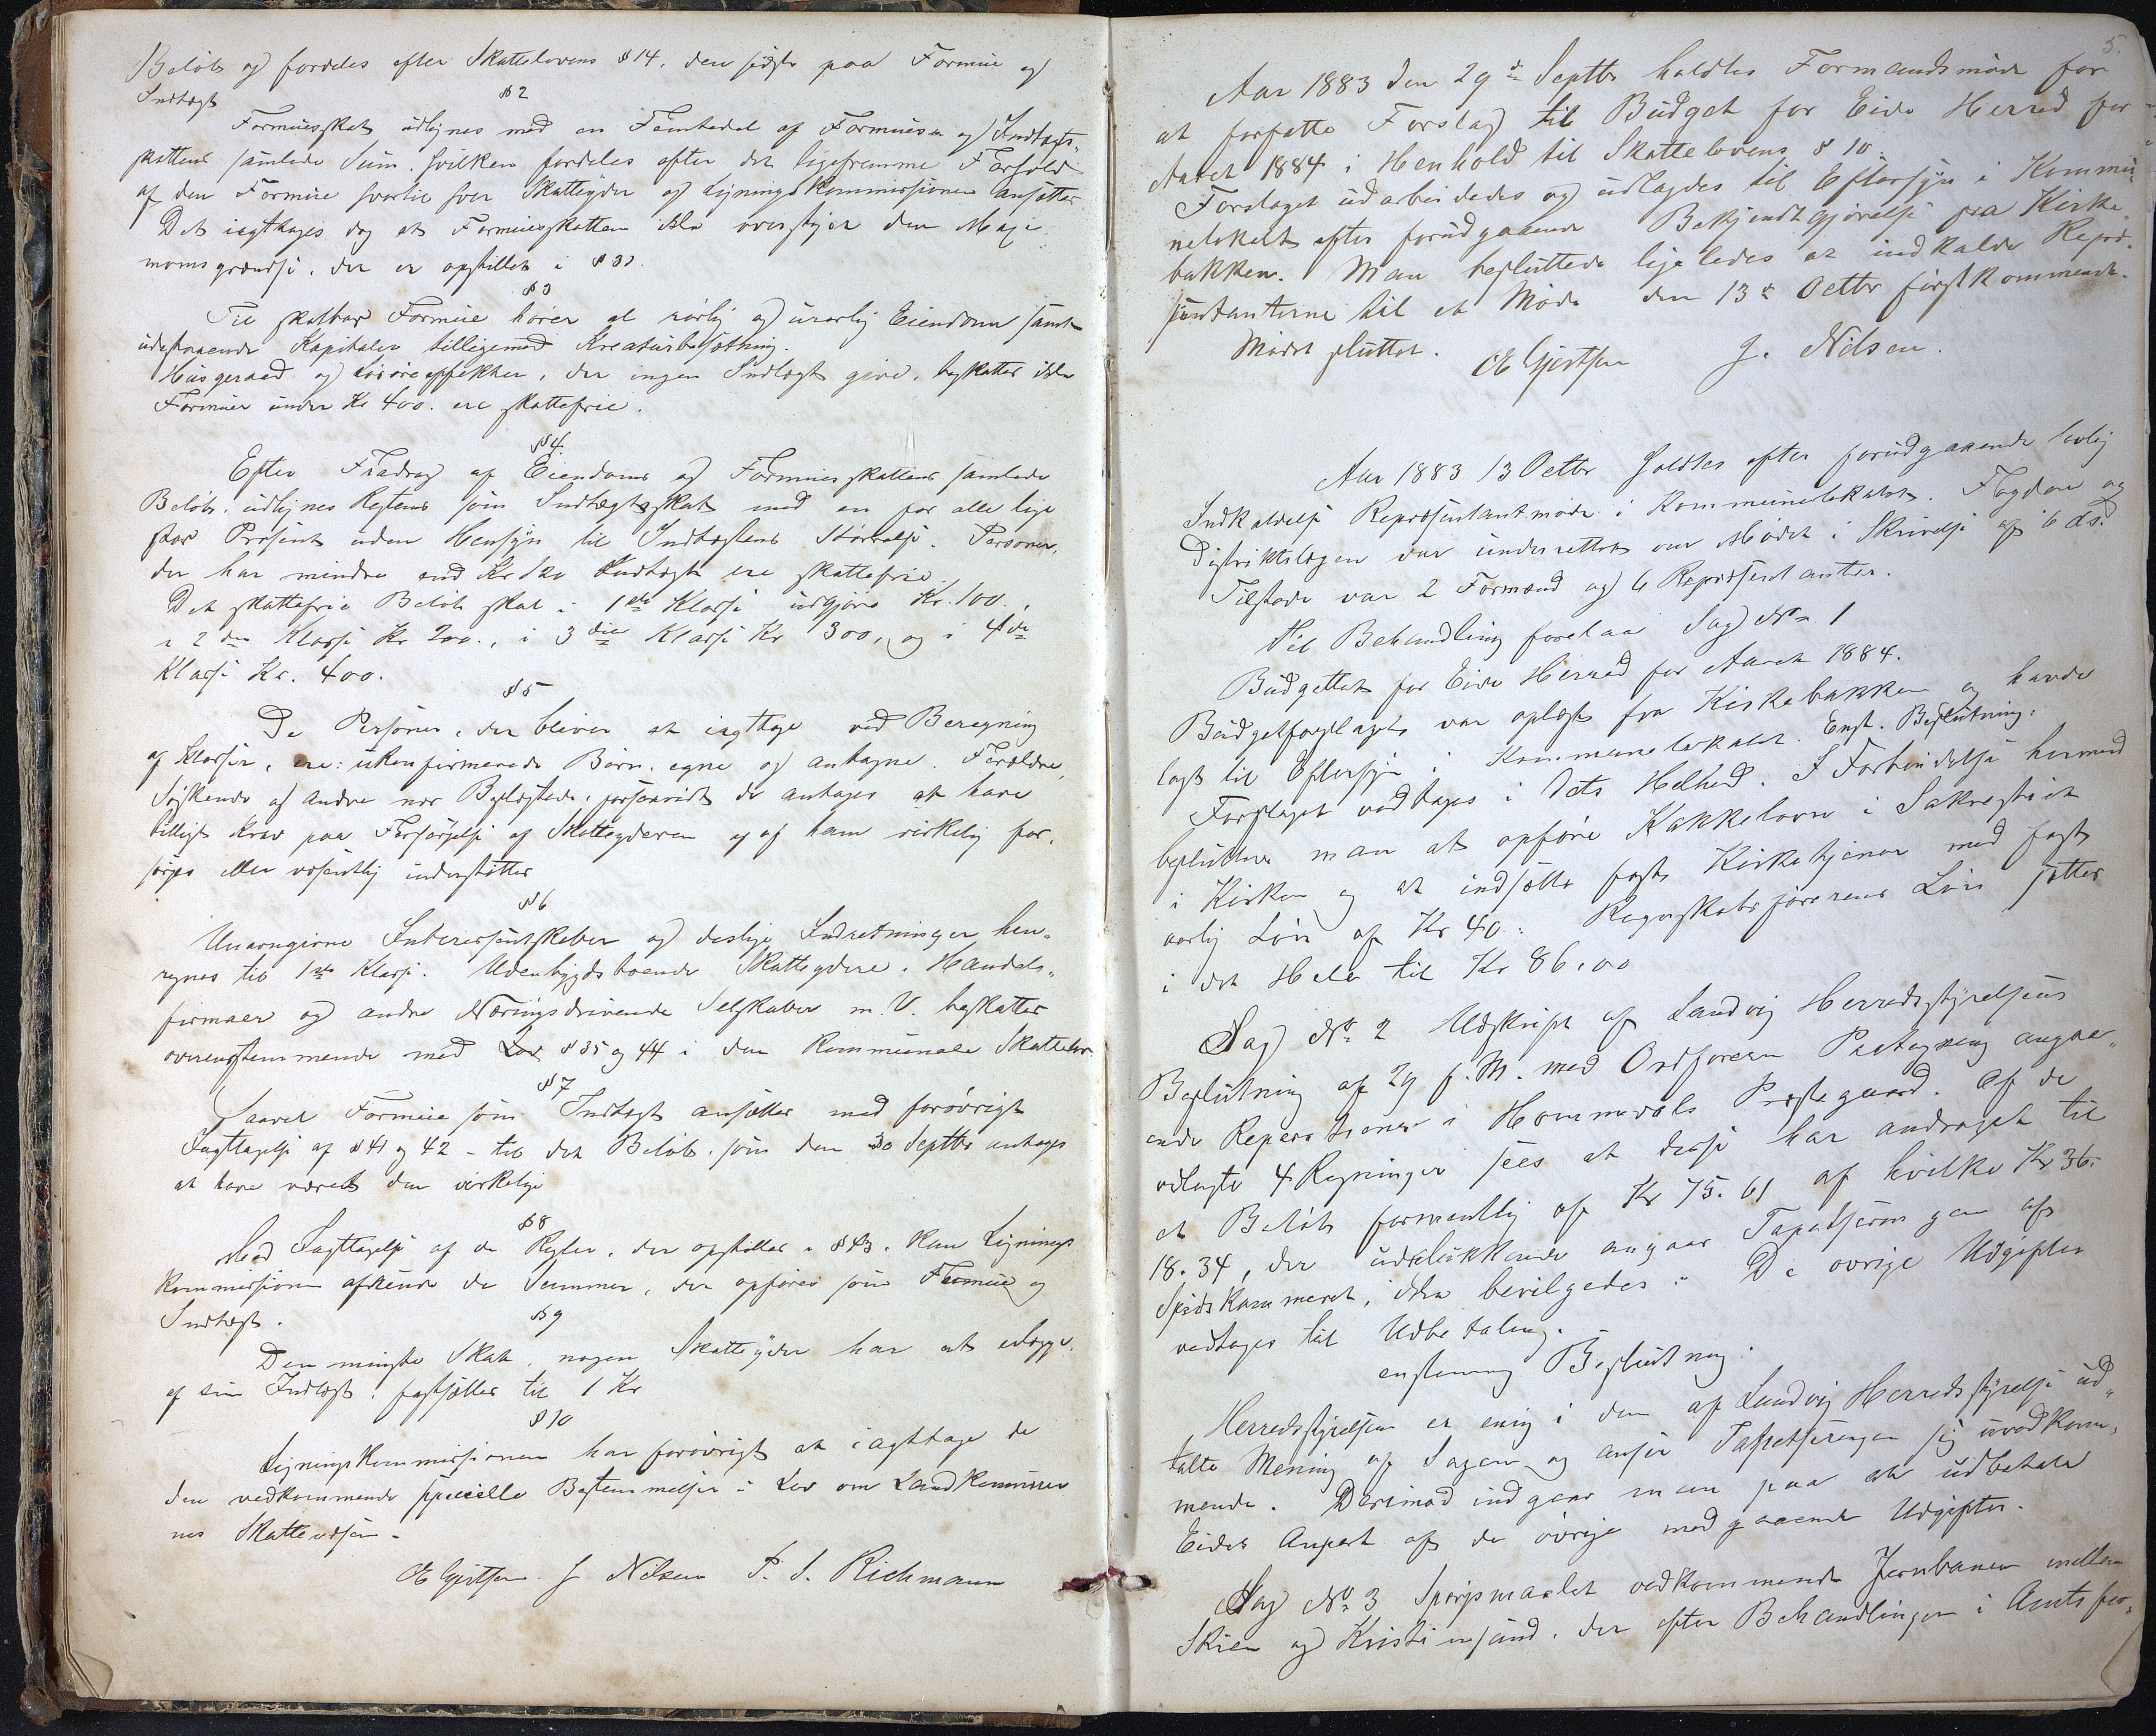 Beløb og fordeles efter Skattelovens § 14, den sidste paa Formue og
Indtægt
§ 2
Formuesskat udlignes med en Femtedel af Formues og Indtægts-
skattens samlede Sum, hvilken fordeles efter det ligefremme Forhold
af den Formue hvortil hver Skatteyder af Ligningskommissionen ansættes
Det iagttages dog at Formuesskatten ikke overstiger den Maxi-
mumsgrændse, der er opstillet i § 3
§ 3
Til skatbar Formue hører al rørlig og urørlig Eiendom samt
udestaaende Kapitaler tilligemed Kreaturbesætning.
Husgeraad og Løsøreeffekter, der ingen Indtægt give, beskattes ikke
Formuer under Kr 400. ere skattefrie.
§ 4.
Efter Fradrag af Eiendoms og Formuesskattens samlede
Beløb, udlignes Restens som Indtægtsskat med en for alle lige
stor Prosent uden Hensyn til Indtægtens Størrelse. Personer,
der har mindre end Kr 120 Indtægt ere skattefrie.
Det skattefrie Beløb skal i 1ste Klasse udgjøre Kr. 100.,
i 2den Klasse Kr 200., i 3die Klasse Kr 300, og i 4de
Klasse Kr. 400.
§ 5
De Personer, der bliver at iagttage ved Beregning
af Klasser, ere: ukonfirmerede Børn, egne og antagne. Forældre,
Søskende og andre nær Beslægtede, forsaavidt de antages at have
billigt Krav paa Forsørgelse af Skatteyderen og af ham virkelig for-
sørges eller væsentlig understøttes
§ 6
Unavngivne Interessentskaber og deslige Indretninger hen-
regnes til 1ste Klasse. Udenbygdsboende Skatteydere, Handels-
firmaer og andre Næringsdrivende Selskaber m. V. beskattes
overensstemmende med Lov § 35 og 44 i den kommunale Skattelov
§ 7
Saavel Formue som Indtægt ansættes med forøvrigt
Iagttagelse af § 41 og 42 - til det Beløb, som den 30 Septbr antages
at have været den virkelige
§ 8
Med Iagttagelse af de Regler, der opstilles i § 43, kan Lignings
kommissionen afrunde de Summer, der opføres som Formue og
Indtægt.
§ 9
Den mingste Skat, nogen Skatteyder har at udlægge
af sin Indtægt, fastsættes til 1 Kr
§ 10
Ligningskommissionen har forøvrigt at iagttage de
den vedkommende specielle Bestemmelser i Lov om Landkommuner
nes Skattevæsen.
O Gjertsen. J Nilsen P. S. Richmann
5.
Aar 1883 den 29de Septbr holdtes Formandsmøde for
at forfatte Forslag til Budget for Eide Herred for
Aaret 1884 i Henhold til Skattelovens § 10.
Forslaget udarbeidedes og udlagdes til Eftersyn i Kommu-
nelokalet efter forudgaaende Bekjendtgjørelse fra Kirke-
bakken. Man besluttede ligeledes at indkalde Repræ-
sentanterne til et Møde den 13de Octbr førstkommende.
Mødet sluttet.
O Gjertsen J. Nilsen.
Aar 1883 13 Octbr holdtes efter forudgaaende lovlig
Indkaldelse Repræsentantmøde i Kommunelokalet. Fogden og
Distriktslægen var underrettet om Mødet i Skrivelse af 6 ds.
Tilstede var 2 Formænd og 6 Repræsentanter.
Til Behandling forelaa Sag No 1
Budgettet for Eide Herred for Aaret 1884.
Budgetforslaget var oplæst fra Kirkebakken og havde
lagt til Eftersyn i Kommunelokalet. Enst. Beslutning:
Forslaget vedtages i dets Helhed. I Forbindelse hermed
besluttede man at opføre Kakkelovn i Sakrestiet
i Kirken og at indsætte fast Kirketjener med fast
aarlig Løn af Kr 40. Regnskabsførerens Løn sættes
i det Hele til Kr 86,00
Sag No 2 Udskrift af Landvig Herredsstyrelses
Beslutning af 29 f. M. med Ordførers Paategning angaa-
ende Reperationer i Hommedals Præstegaard. Af de
vedlagte 4 Regninger sees at disse har andraget til
et Beløb formentlig af Kr 75.61 af hvilke Kr 36.
18.34, der udelukkende angaar Tapetseringen af
Spisekammeret, ikke bevilgedes. De øvrige Udgifter
vedtages til Udbetaling.
enstemmig Beslutning:
Herredsstyrelsen er enig i den af Landvig Herredsstyrelse ud-
talte Mening af Sagen og anser Tapetseringen sig uvedkom-
mende. Derimod indgaar man paa at udbetale
Eides Anpart af de øvrige medgaaende Udgifter.
Sag No 3 Spørgsmaalet vedkommende Jernbanen mellem
Skien og Kristiansand, der efter Behandlingen i Amtsfor-